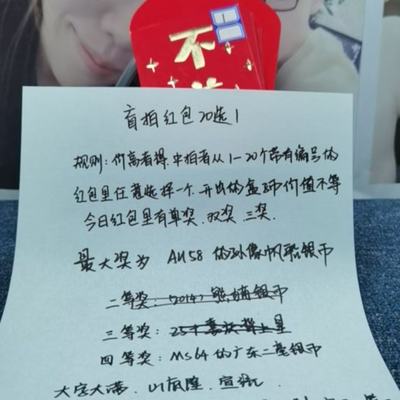 不
盲拍红包20选1
规则:价高者得,中拍者从1-20个带有编号的
红包里任意选择一个,开出的盒币价值不等
今日红包里有单奖、双奖、三奖、
最大奖为 AU58的孙像帆船银币
二等奖:2014年熊猫银币
三等奖:
四等奖:MS64的广东二毫银币
大字大清、